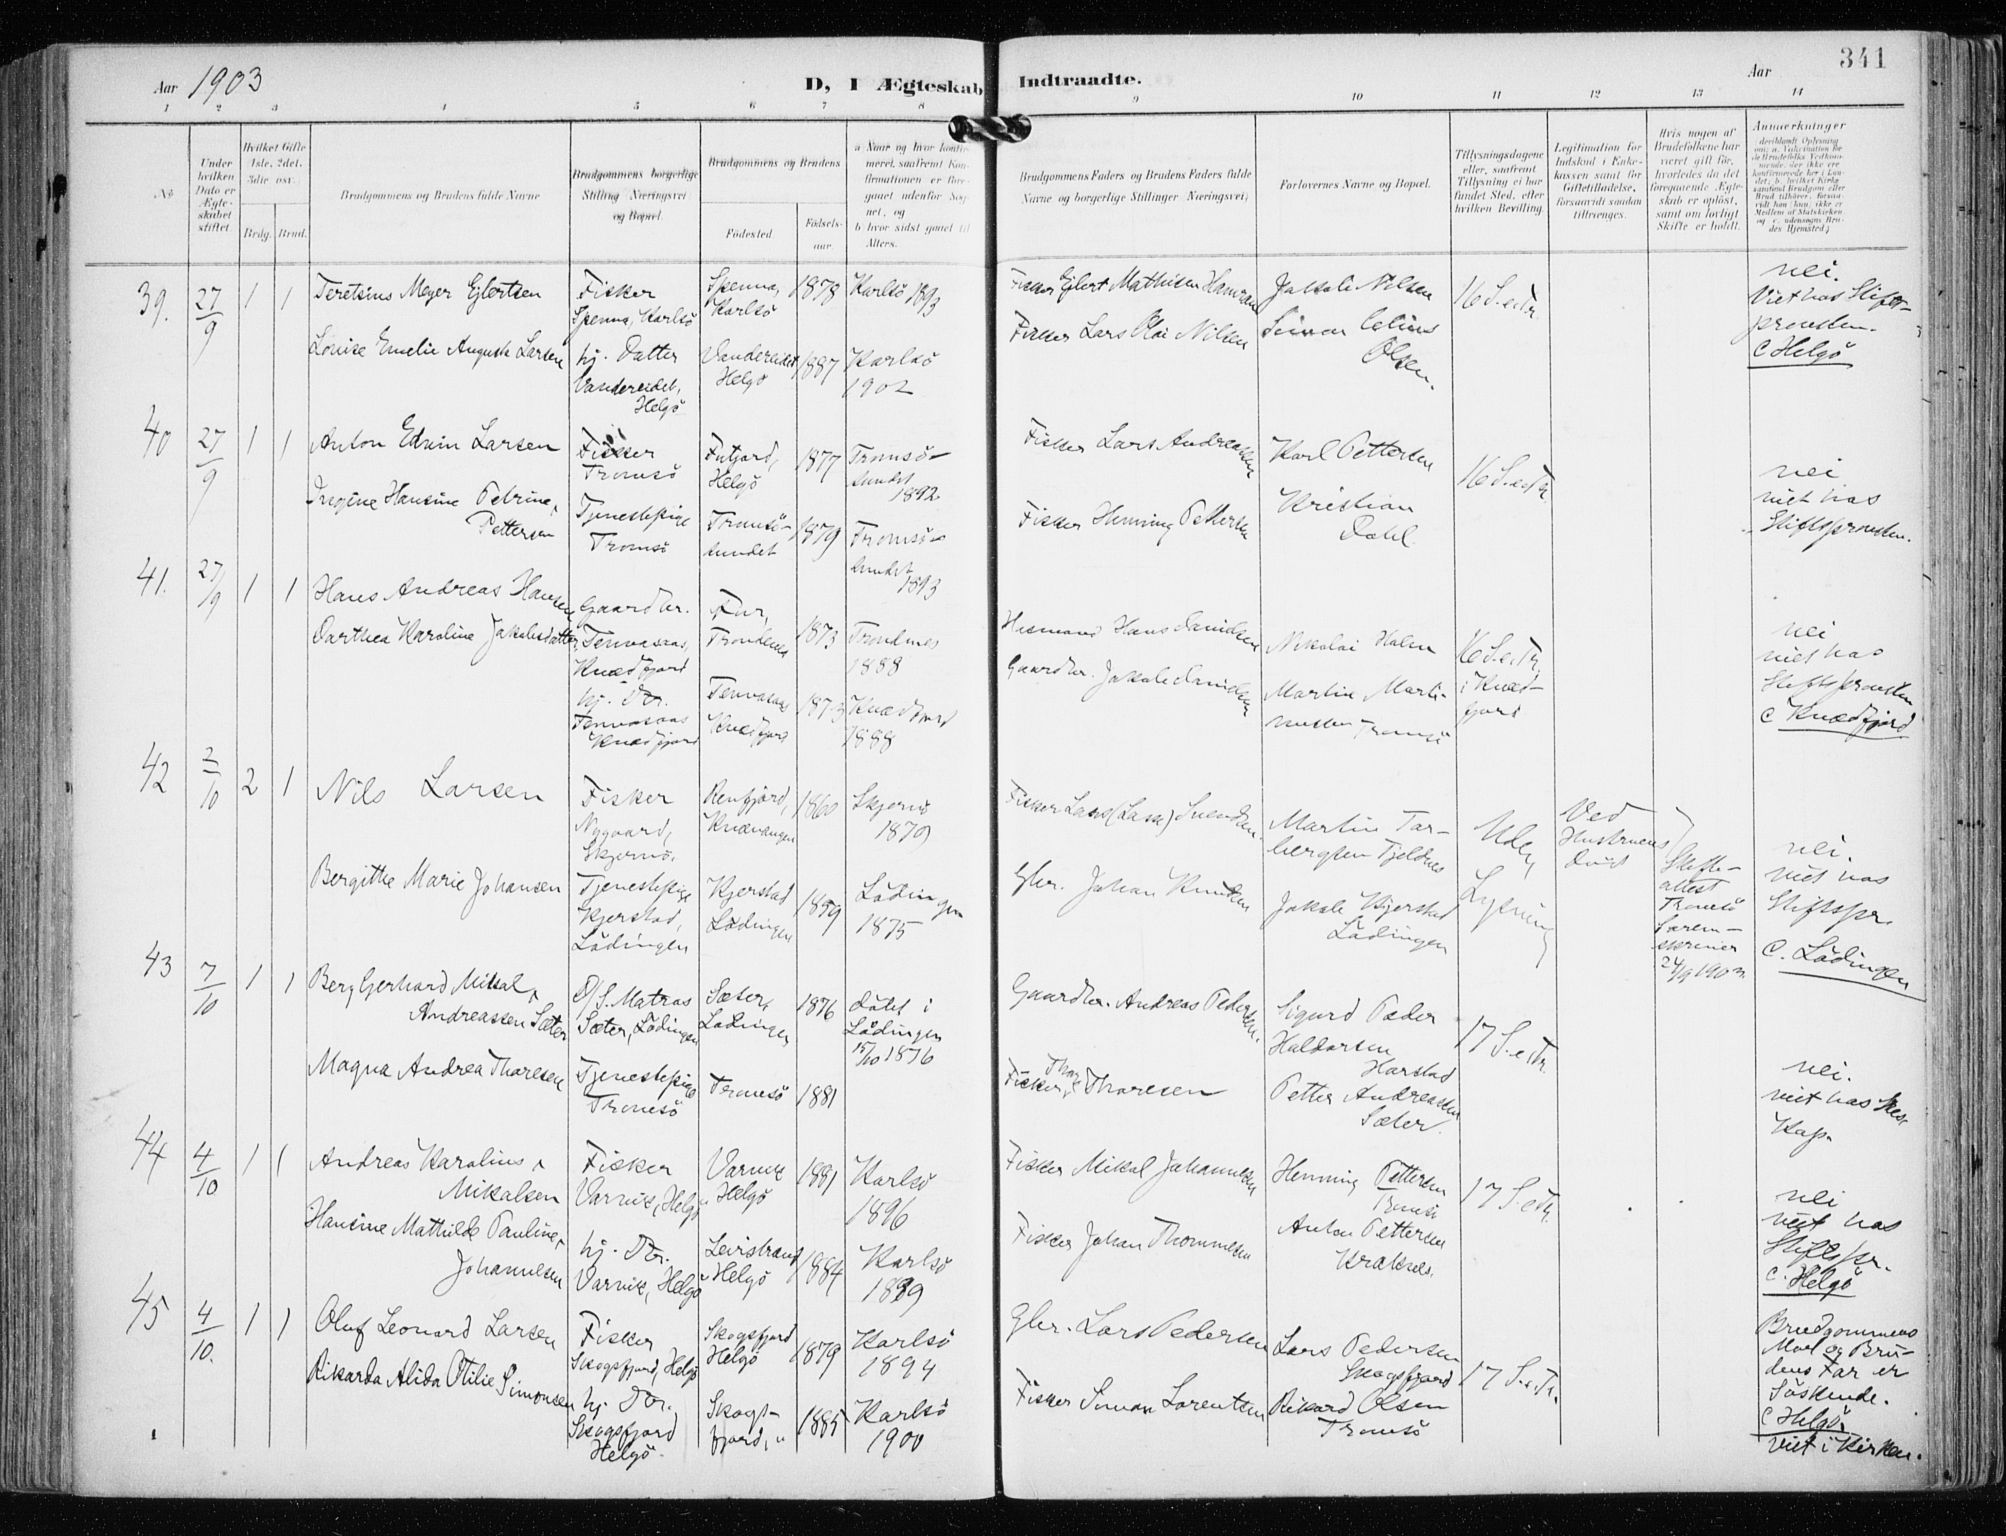 Aar 1903
D, I Ægteskab Indtraadte.
Aar
341
1 2 3 4 5 6 7 8 9 10 11 12 13 14
No
Under hvilken Dato er Ægteskabet stiftet
Hvilket Gifte 1ste, 2det, 3die osv.
Brdg. Brud.
Brudgommens og Brudens fulde Navne
Brudgommens borgerlige Stilling (Næringsvei) og Bopæl.
Brudgommens og Brudens
Fødested
Fødselsaar.
a Naar og hvor konfirmeret, saafremt Konfirmationen er foregaaet udenfor Sognet, og
b hvor sidst gaaet til Alters.
Brudgommens Faders og Brudens Faders fulde Navne og borgerlige Stillinger (Næringsvei)
Forlovernes Navne og Bopæl.
Tillysningsdagene eller, saafremt Tillysning ei har fundet Sted, efter hvilken Bevilling.
Legitimation for Indskud i Enkekassen samt for Giftetilladelse, forsaavidt saadan tiltrænges.
Hvis nogen af Brudefolkene har været gift før, hvorledes da det foregaaende Ægteskab er opløst, samt om lovligt Skifte er holdt.
Anmærkninger
39. 27/9 1 1 Teretsius Meyer Ejlertsen
Fisker Spenna, Karlsö
Spenna, Karlsö
1878
Karlsö 1893
Fisker Ejlert Mathisen Hansen
Jakob Nilsen
16 S.e.Tr.
nei.
Viet hos Stiftsprovsten.
C Helgö
Louise Emelie Auguste Larsen
hj. Datter
Vandereidet, Helgö
Vandereidet Helgö
1887
Karlsö 1902
Fisker Lars Olai Nilsen
Simon Olsen.
40 27/9 1 1 Anton Edvin Larsen
Fisker Tromsö
Futjord, Helgö
1877
Tromsösundet 1892
Fisker Lars Andreassen
Karl Pettersen
16 S.e.Tr.
nei
viet hos Stiftsprovsten.
Hansine Petrine Pettersen
Tjenestepige Tromsö
Tromsösundet
1879
Tromsösundet 1893
Fisker Henning Pettersen
Kristian Dahl
41. 27/9 1 1 Hans Andreas Hansen
Gaardbr. Tennvasaas, Kvædfjord
Trondenes
1873
Trondenes 1888
Husmand Hans Davidsen
Nikolai Holm
16 S.e.Tr. i Kvædfjord
nei
viet hos Stiftsprovsten
C Kvædfjord
Darthea Karoline Jakobsdatter
hj. Dr.
Tennvasaas Kvædfjord
Tennvasaas Kvædfjord
1873
Kvædfjord 1888
Gaardbr. Jakob Davidsen
Martin Martinussen Tromsö
42 2/10 2 1 Nils Larsen
Fisker Nygaard, Skjervö.
Renfjord, Kvænangen
1860
Skjervö 1879
Fisker Lars (Lasse) Svendsen.
Martin Torbergsen Tjeldnes
Uden Lysning
Ved Hustruens død
Skifteattest Tromsö Sorenskriver 24/9 1903.
nei.
viet hos Stiftspr.
C. Lödingen
Bergitthe Marie Johansen
Tjenestepige Kjerstad, Lödingen
Kjerstad Lödingen
1859
Lödingen 1875
Gbr. Johan Knudsen
Jakob Kjerstad Lödingen
43 7/10 1 1 Berg Gerhard Mikal Andreassen Sæter
D/S. Matros Sæter, Lödingen
Sæter, Lödingen
1876
døbt i Lödingen 15/10 1876
Gaardbr. Andreas Pedersen.
Sigurd Peder Haldorsen Harstad
17 S.e.Tr.
nei.
viet hos Res. Kap.
Magna Andrea Thoresen
Tjenestepige Tromsö
Tromsö
1881
Fisker Thor Thoresen
Petter Andreassen Sæter.
44 4/10 1 1 Andreas Karolius Mikalsen
Fisker Varvik, Helgö
Varvik Helgö
1881
Karlsö 1896
Fisker Mikal Johannessen
Henning Pettersen Tromsö
17 S.e.Tr.
nei
viet hos Stiftspr.
C. Helgö
Hansine Mathilde Pauline Johannesen
hj. Dr. Varvik, Helgö
Leirstrand Helgö
1884
Karlsö 1899
Fisker Johan Thommesen
Anton Pettersen
45 4/10. 1 1 Oluf Leonard Larsen
Fisker Skogsfjord, Helgö
Skogsfjord Helgö
1879
Karlsö 1894
Gbr. Lars Pedersen
Lars Pedersen Skogsfjord
17 S.e.Tr.
Brudgommens Mor og Brudens Far er Söskende.
C Helgö.
viet i Kirken.
Rikarda Alida Otilie Simonsen
hj. Dr. Skogsfjord Helgö.
Skogsfjord, "
1885
Karlsö 1900
Fisker Simon Lorentsen
Rikard Olsen Tromsö